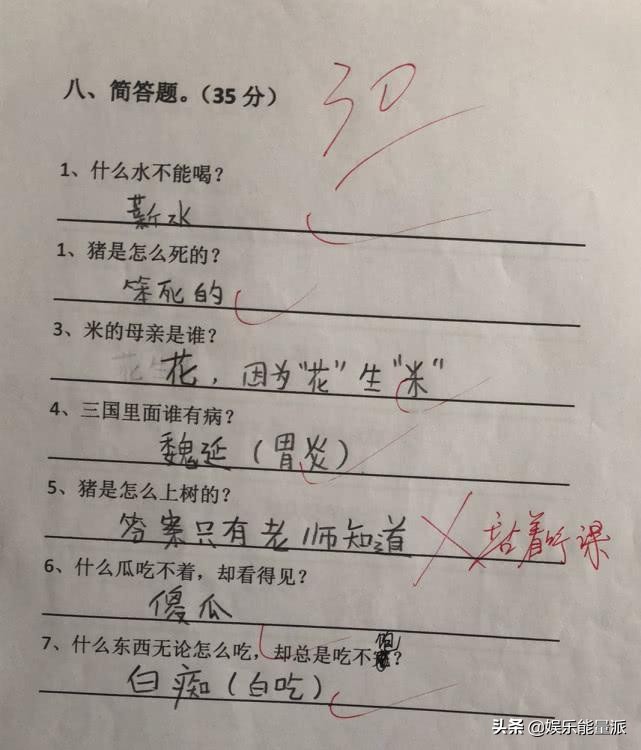 八、简答题。(35 分)
30
1、什么水不能喝?
薪水
1、猪是怎么死的?
笨死的
3、米的母亲是谁?
花，因为"花"生"米"
4、三国里面谁有病?
魏延(胃炎)
5、猪是怎么上树的?
答案只有老师知道
站着听课
6、什么瓜吃不着，却看得见?
傻瓜
7、什么东西无论怎么吃，却总是吃不饱?
白痴(白吃)
头条 @娱乐能量派